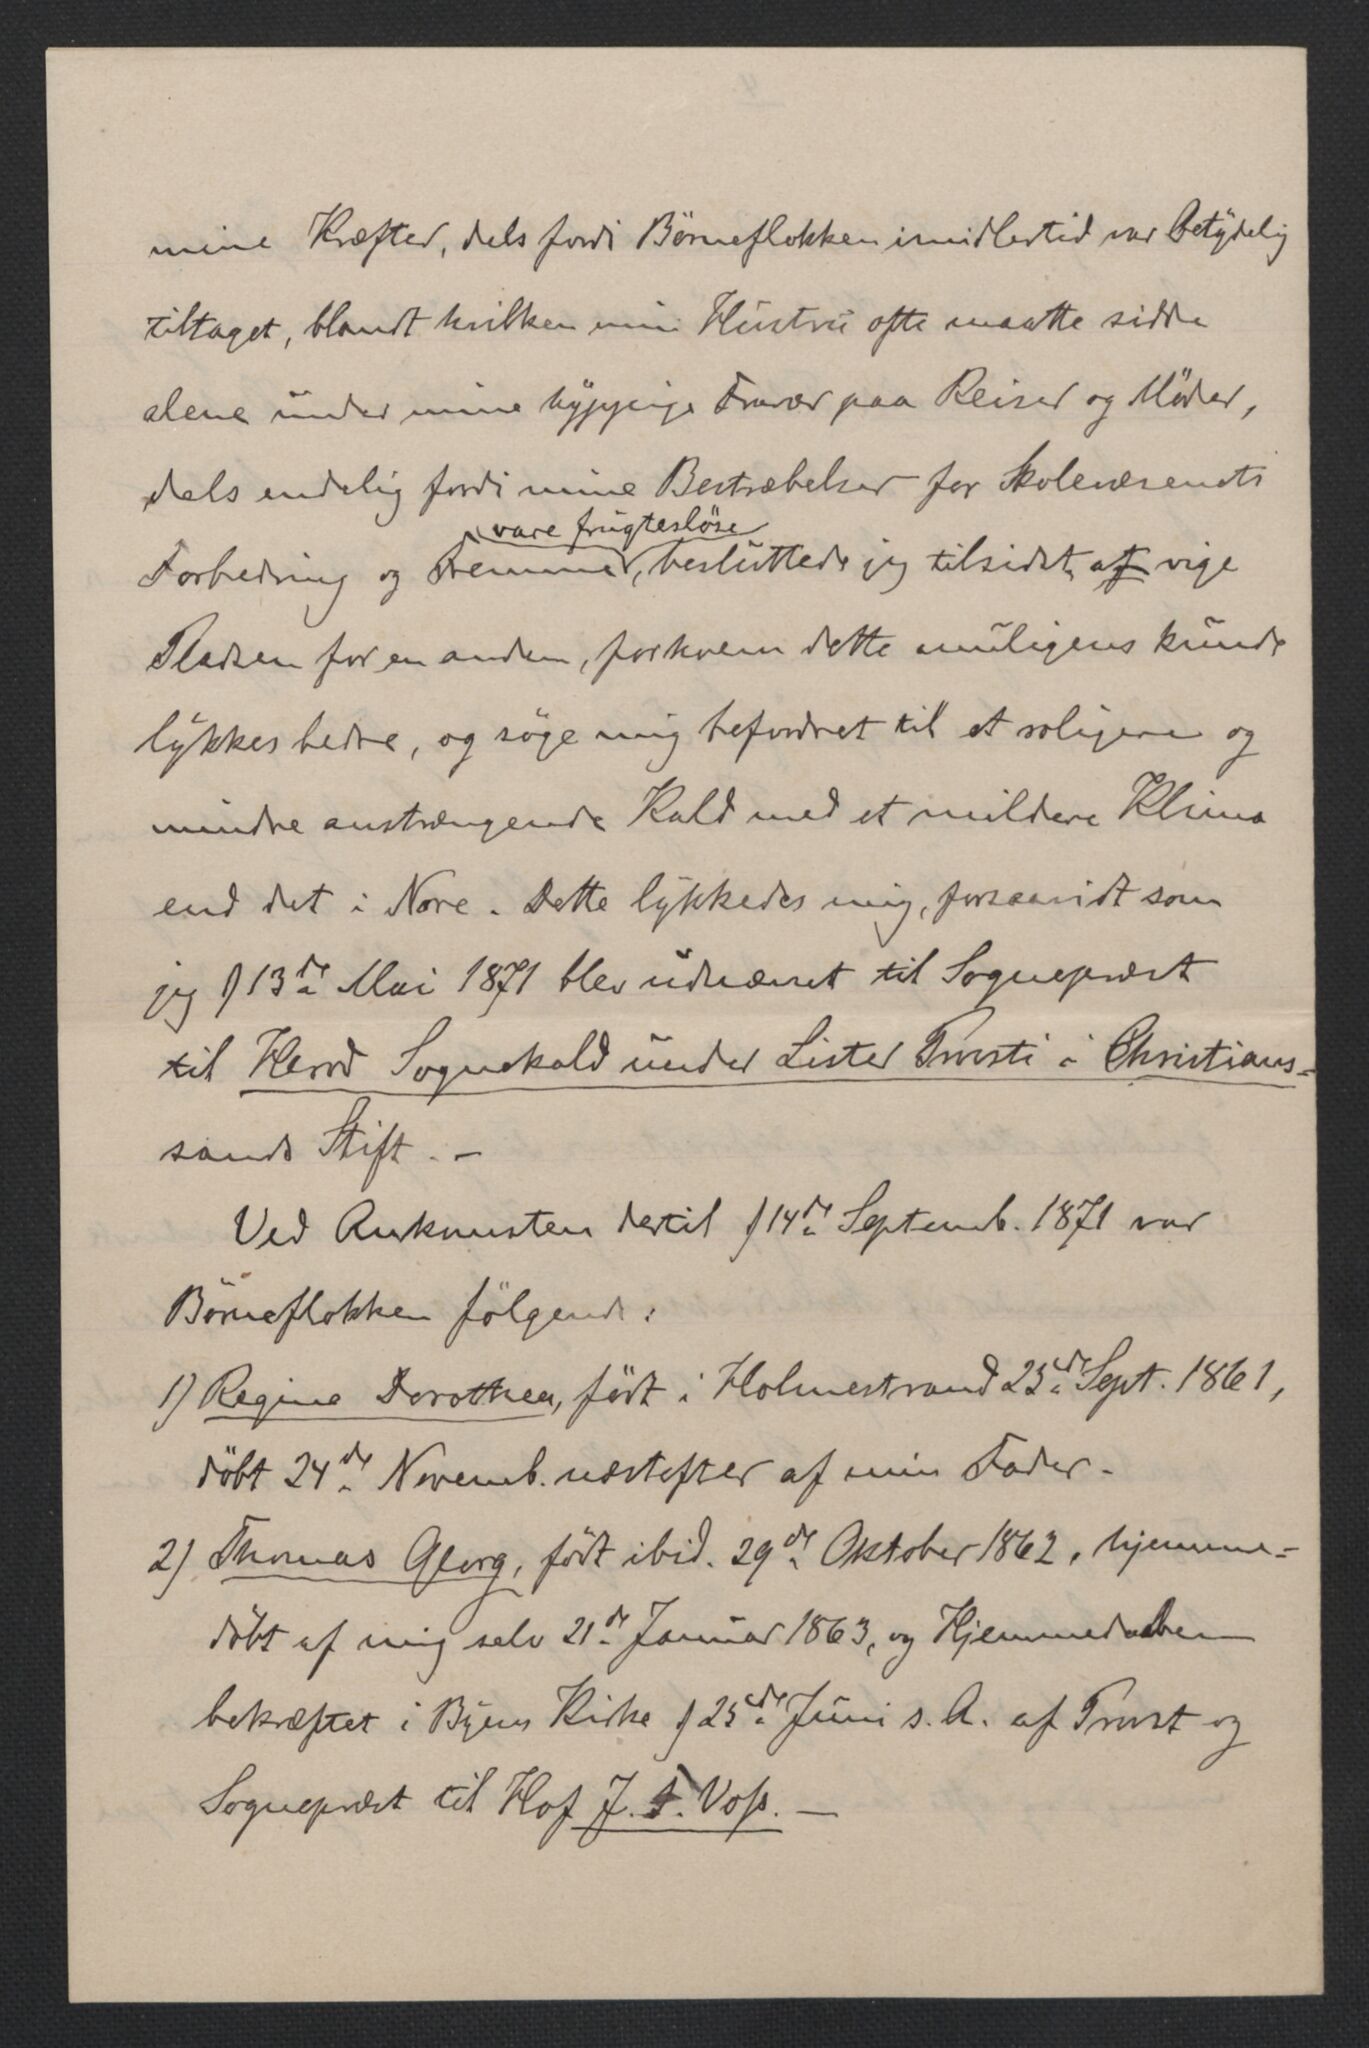 mine Kræfter, dels fordi Börneflokken imidlertid var betydelig
tiltaget, blandt hvilken min Hustru ofte maatte sidde
alene under mine hyppige Fravær paa Reiser og Möder,
dels endelig fordi mine Bestræbelser for Skolevæsenets
vare frugteslöse
Forbedring og Fremme, besluttede jeg tilsidst at vige
Pladsen for en anden, for hvem dette muligens kunde
lykkes bedre, og söge mig befordret til et roligere og
mindre anstrængende Kald med et mildere Klima
end det i Nore. Dette lykkedes mig, forsaavidt som
jeg d 13de Mai 1871 blev udnævnt til Sognepræst
til Herod Sognekald under Lister Provsti i Christians-
sands Stift. –
Ved Ankomsten dertil d 14de Septemb. 1871 var
Börneflokken fölgende:
1) Regine Dorothea, födt i Holmestrand 23de Sept. 1861,
döbt 24de Novemb. næstefter af min Fader.
2) Thomas Georg, födt ibid. 29de Oktober 1862, hjemme-
döbt af mig selv 21de Januar 1863, og Hjemmedaaben
bekræftet i Byens Kirke d 25de Juni s. A. af Provst og
Sognepræst til Hof J. F. Voss. –